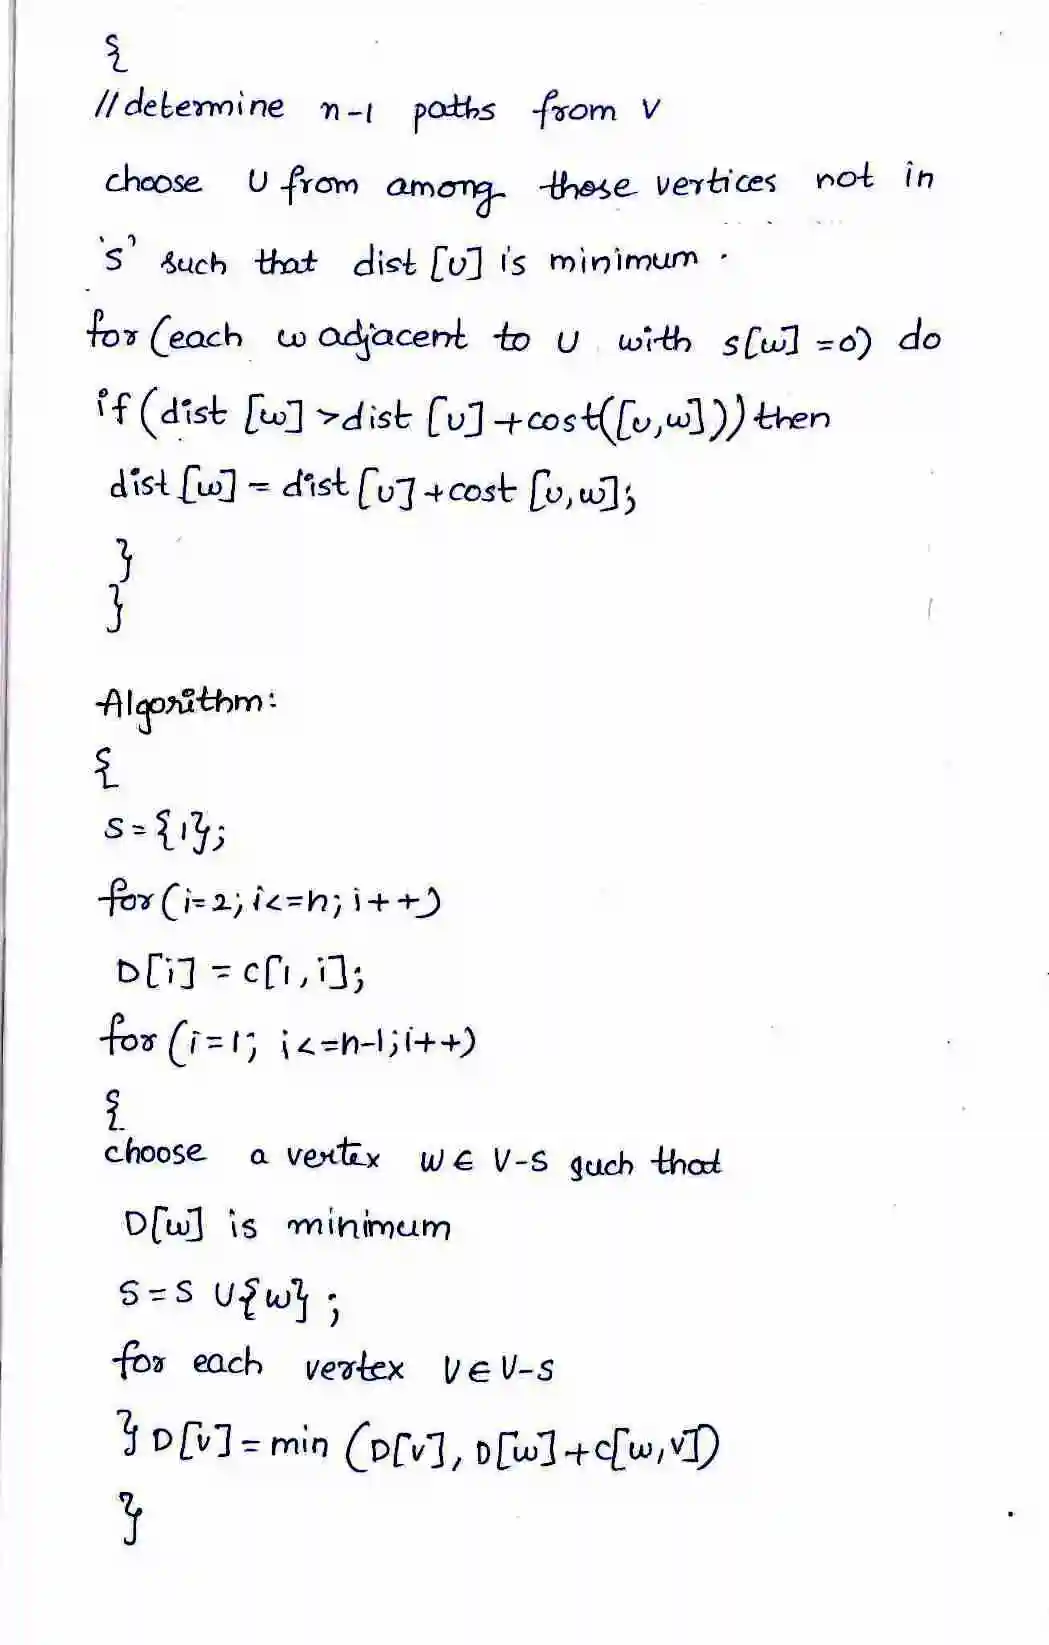 {
//determine n-1 paths from v
choose U from among those vertices not in
's' such that dist [u] is minimum.
for (each w adjacent to u with s[w] =0) do
if (dist [w] >dist [u] +cost([u,w])) then
dist [w] = dist [u] +cost [u,w];
}
}
Algorithm:
{
S={1};
for(i=2; i<=n; i++)
D[i] = c[1,i];
for (i=1; i<=n-1; i++)
{
choose a vertex w∈ V-S such that
D[w] is minimum
S=S U{w} ;
for each vertex V∈V-S
} D[v] = min (D[v], D[w]+c[w,v])
}